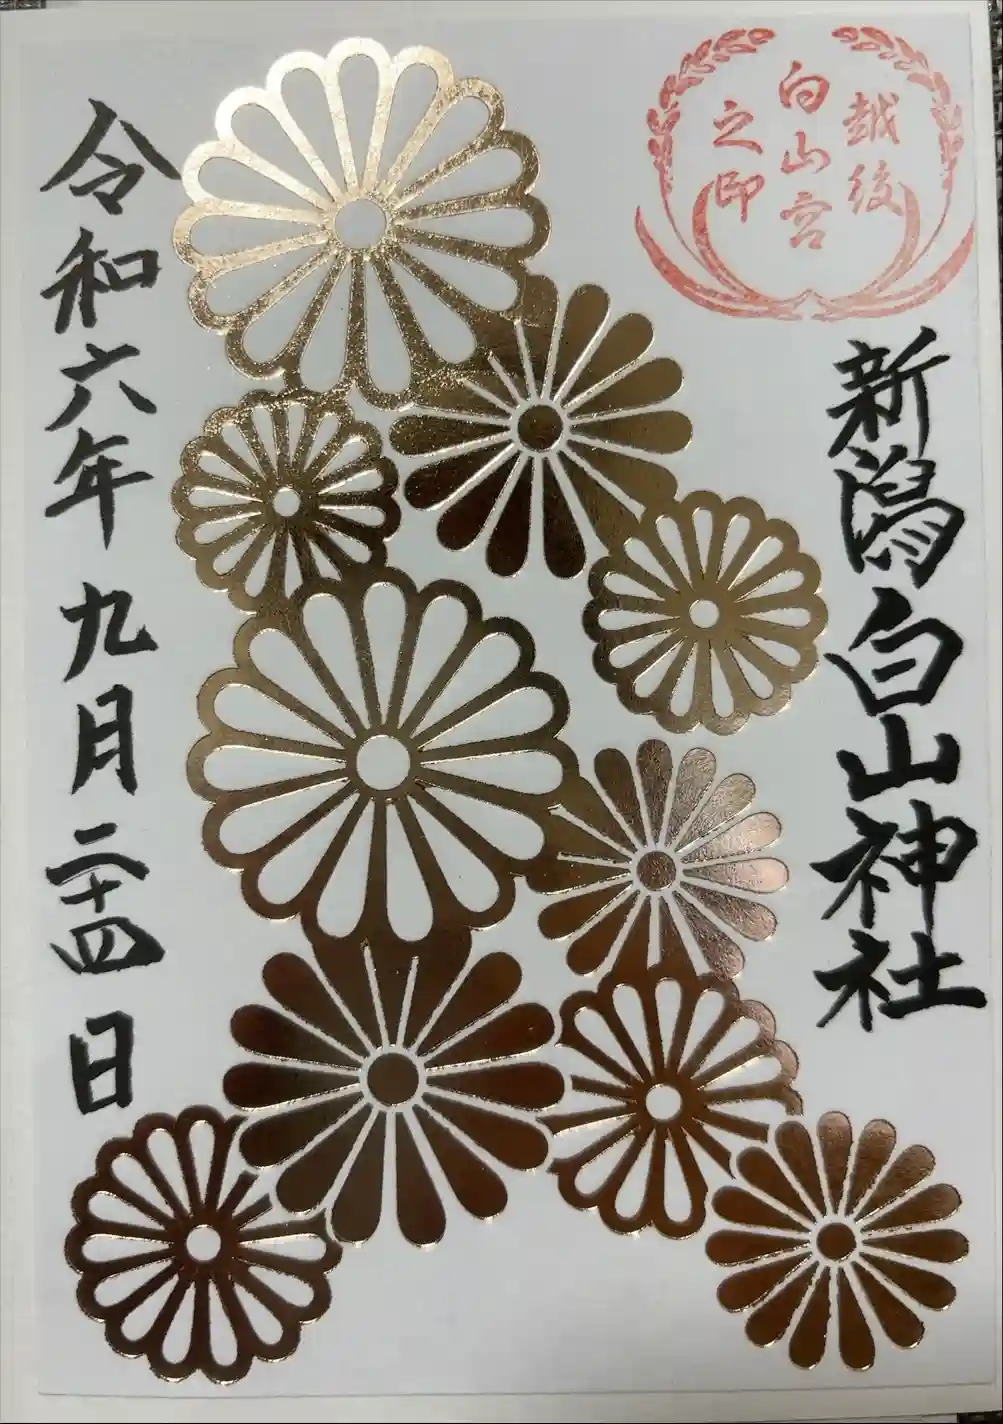 越後
白山宮
之印
新潟白山神社
令和六年九月二十四日